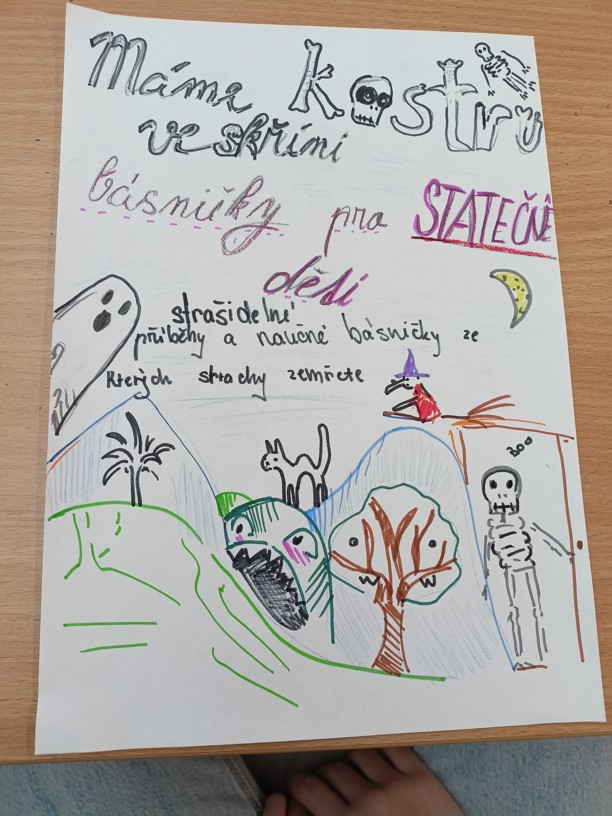 Máme kostru
ve skříni
básničky pro STATEČNÉ
děti
strašidelné
příběhy a naučné básničky ze
kterých strachy zemřete
BOO